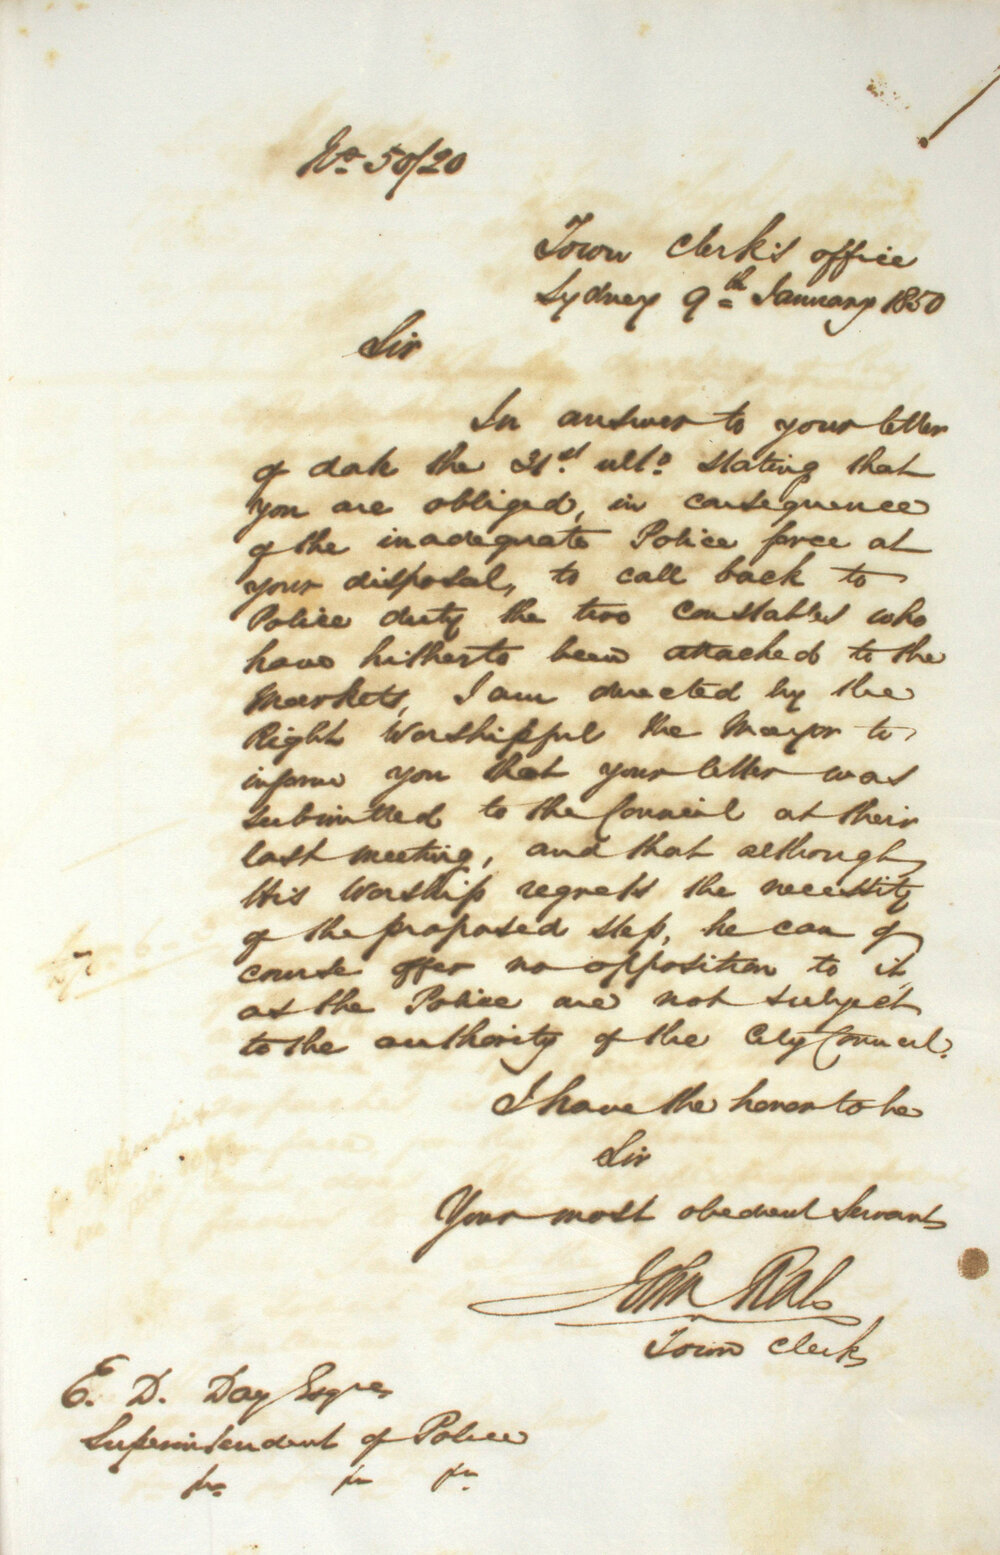 No. 50/20
Town Clerk's office
Sydney 9th January 1850
Sir
In answer to your letter
of date the 31st. ulto. stating that
you are obliged, in consequence
of the inadequate Police force at
your disposal, to call back to
Police duty the two constables who
have hitherto been attached to the
Markets, I am directed by the
Right Worshipful the Mayor to
inform you that your letter was
submitted to the Council at their
last meeting, and that although
His Worship regrets the necessity
of the proposed step, he can of
course offer no opposition to it,
as the Police are not subject
to the authority of the City Council.
I have the honor to be
Sir
Your most obedient Servant
John Rae
Town Clerk
E. D. Day Esqre
Superintendent of Police